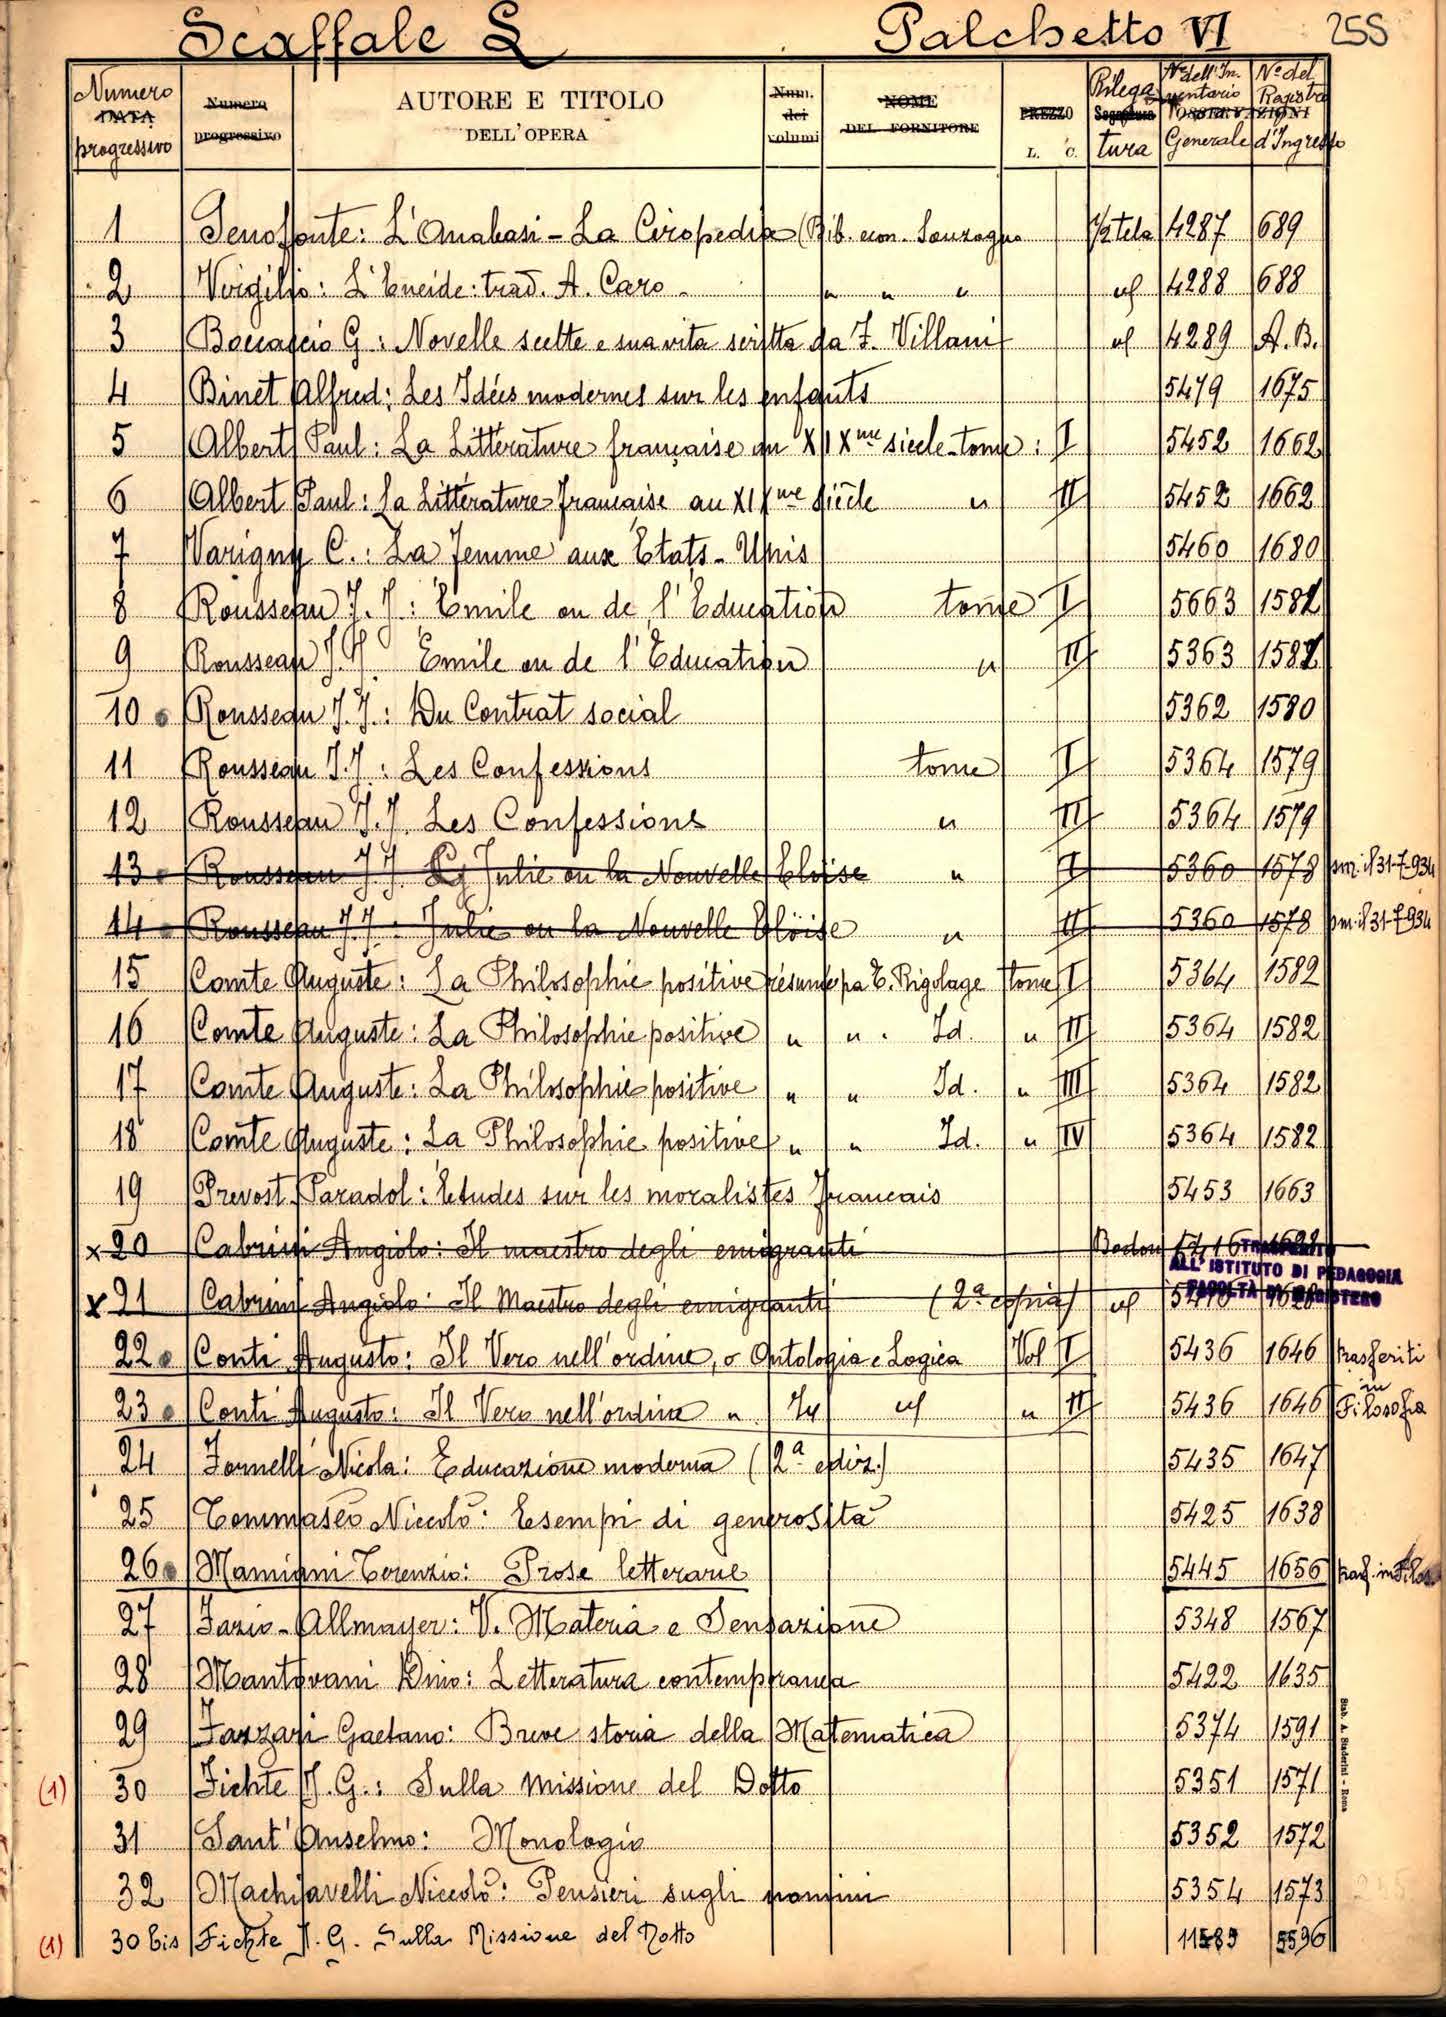 Scaffale L Palchetto VI 255
Numero DATA progressivo Numero progressivo AUTORE E TITOLO DELL'OPERA Num. dei volumi NOME DEL FORNITORE PREZZO L. C. Rilegatura Nº dell'Inventario Generale OSSERVAZIONI Nº del Registro d'Ingresso
1 Senofonte: L'Anabasi - La Ciropedia (Bib. econ. Sonzogno 1/2 tela 4287 689
2 Virgilio: L'Eneide: trad. A. Caro - " " " id 4288 688
3 Boccaccio G: Novelle scelte e sua vita scritta da F. Villani id 4289 A.B.
4 Binet Alfred: Les Idées modernes sur les enfants 5479 1675
5 Albert Paul: La Littérature française au XIXme siècle - tome: I 5452 1662
6 Albert Paul: La Littérature française au XIXme siècle " II 5452 1662
7 Varigny C.: La femme aux Etats-Unis 5460 1680
8 Rousseau J.J.: Emile ou de l'Education tome I 5663 1581
9 Rousseau J.J. Emile ou de l'Education " II 5363 1581
10 Rousseau J.J.: Du Contrat social 5362 1580
11 Rousseau J.J.: Les Confessions tome I 5364 1579
12 Rousseau J.J. Les Confessions " II 5364 1579
13 Rousseau J.J. Julie ou la Nouvelle Eloïse " I 5360 1578 sm. il 31-7-934
14 Rousseau J.J.: Julie ou la Nouvelle Eloïse " II 5360 1578 sm. il 31-7-934
15 Comte Auguste: La Philosophie positive résumé pa E. Rigolage tome I 5364 1582
16 Comte Auguste: La Philosophie positive " " Id. " II 5364 1582
17 Comte Auguste: La Philosophie positive " " Id. " III 5364 1582
18 Comte Auguste: La Philosophie positive " " Id. " IV 5364 1582
19 Prevost-Paradol: Etudes sur les moralistes français 5453 1663
x 20 Cabrini Angiolo: Il maestro degli emigranti
TRASFERITO
ALL'ISTITUTO DI PEDAGOGIA
FACOLTÀ DI MAGISTERO
x 21 Cabrini Angiolo: Il Maestro degli emigranti (2ª copia) id 1628
22 Conti Augusto: Il Vero nell'ordine, o Ontologia e Logica Vol I 5436 1646 trasferiti
23 Conti Augusto: Il Vero nell'ordine " Id id " II 5436 1646 in Filosofia
24 Fornelli Nicola: Educazione moderna (2ª ediz.) 5435 1647
25 Tommaseo Niccolò: Esempi di generosità 5425 1638
26 Mamiani Terenzio: Prose letterarie 5445 1656 trasf. in Filos.
27 Fazio-Allmayer: V. Materia e Sensazione 5348 1567
28 Mantovani Dino: Letteratura contemporanea 5422 1635
29 Fazzari Gaetano: Breve storia della Matematica 5374 1591
(1) 30 Fichte J.G.: Sulla missione del Dotto 5351 1571
31 Sant'Anselmo: Monologio 5352 1572
32 Machiavelli Niccolò: Pensieri sugli uomini 5354 1573
(1) 30 bis Fichte J.G. Sulla Missione del Dotto 11589 5596
Stab. A. Staderini - Roma